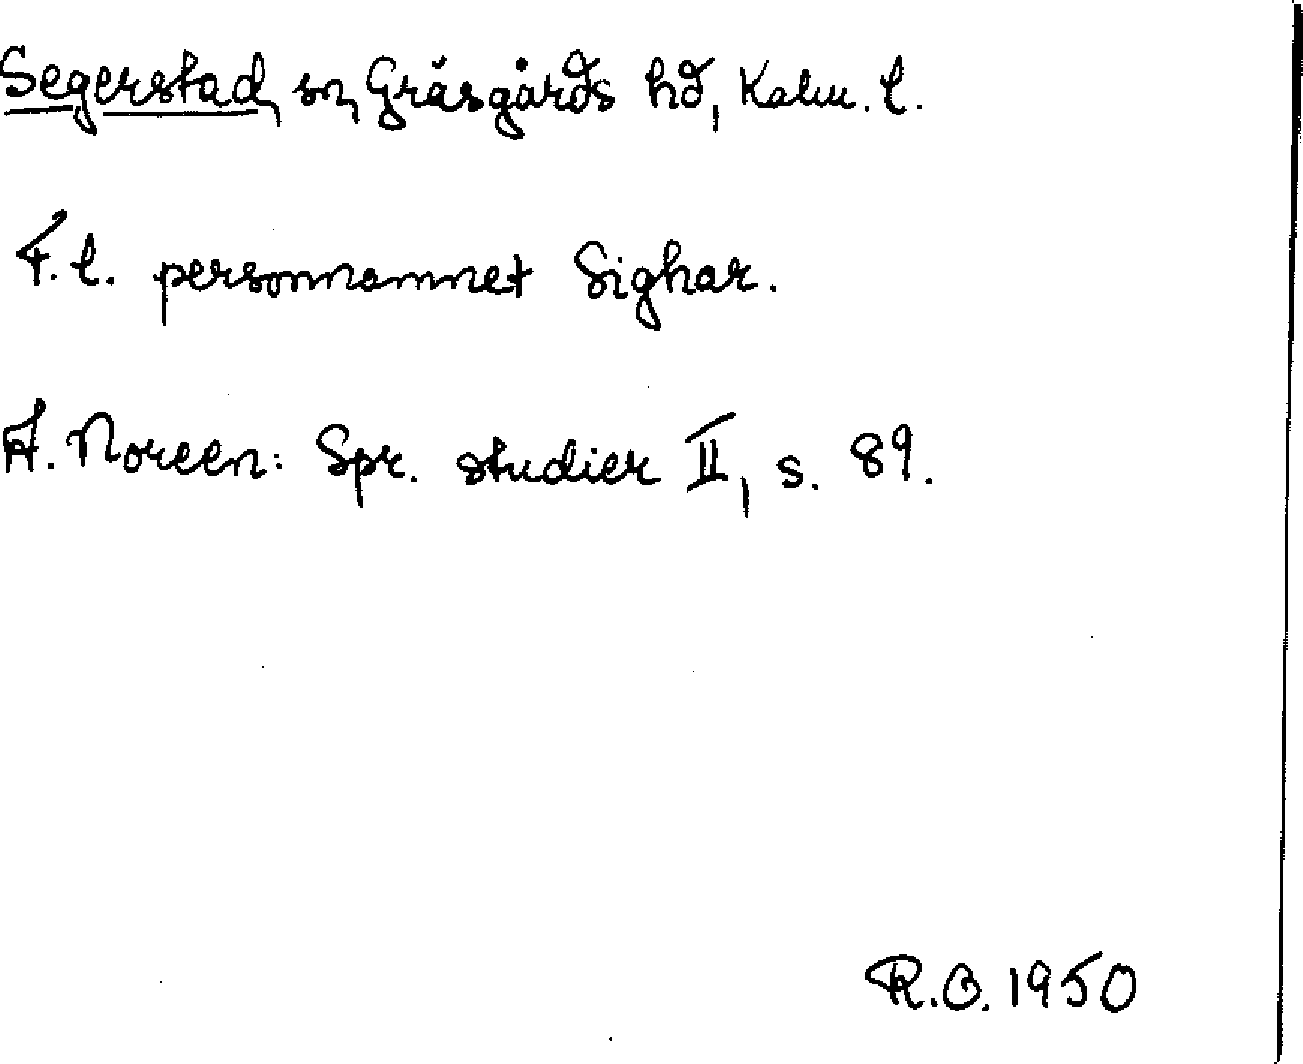 Segerstad, sn, Gräsgårds hd, Kalm. l.
F. l. personnamnet Sighar.
A. Noreen: Spr. studier II, s. 89.
R.O. 1950